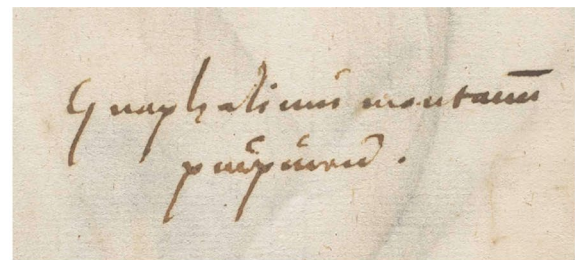 Gnaphalium montanū
purpureū.